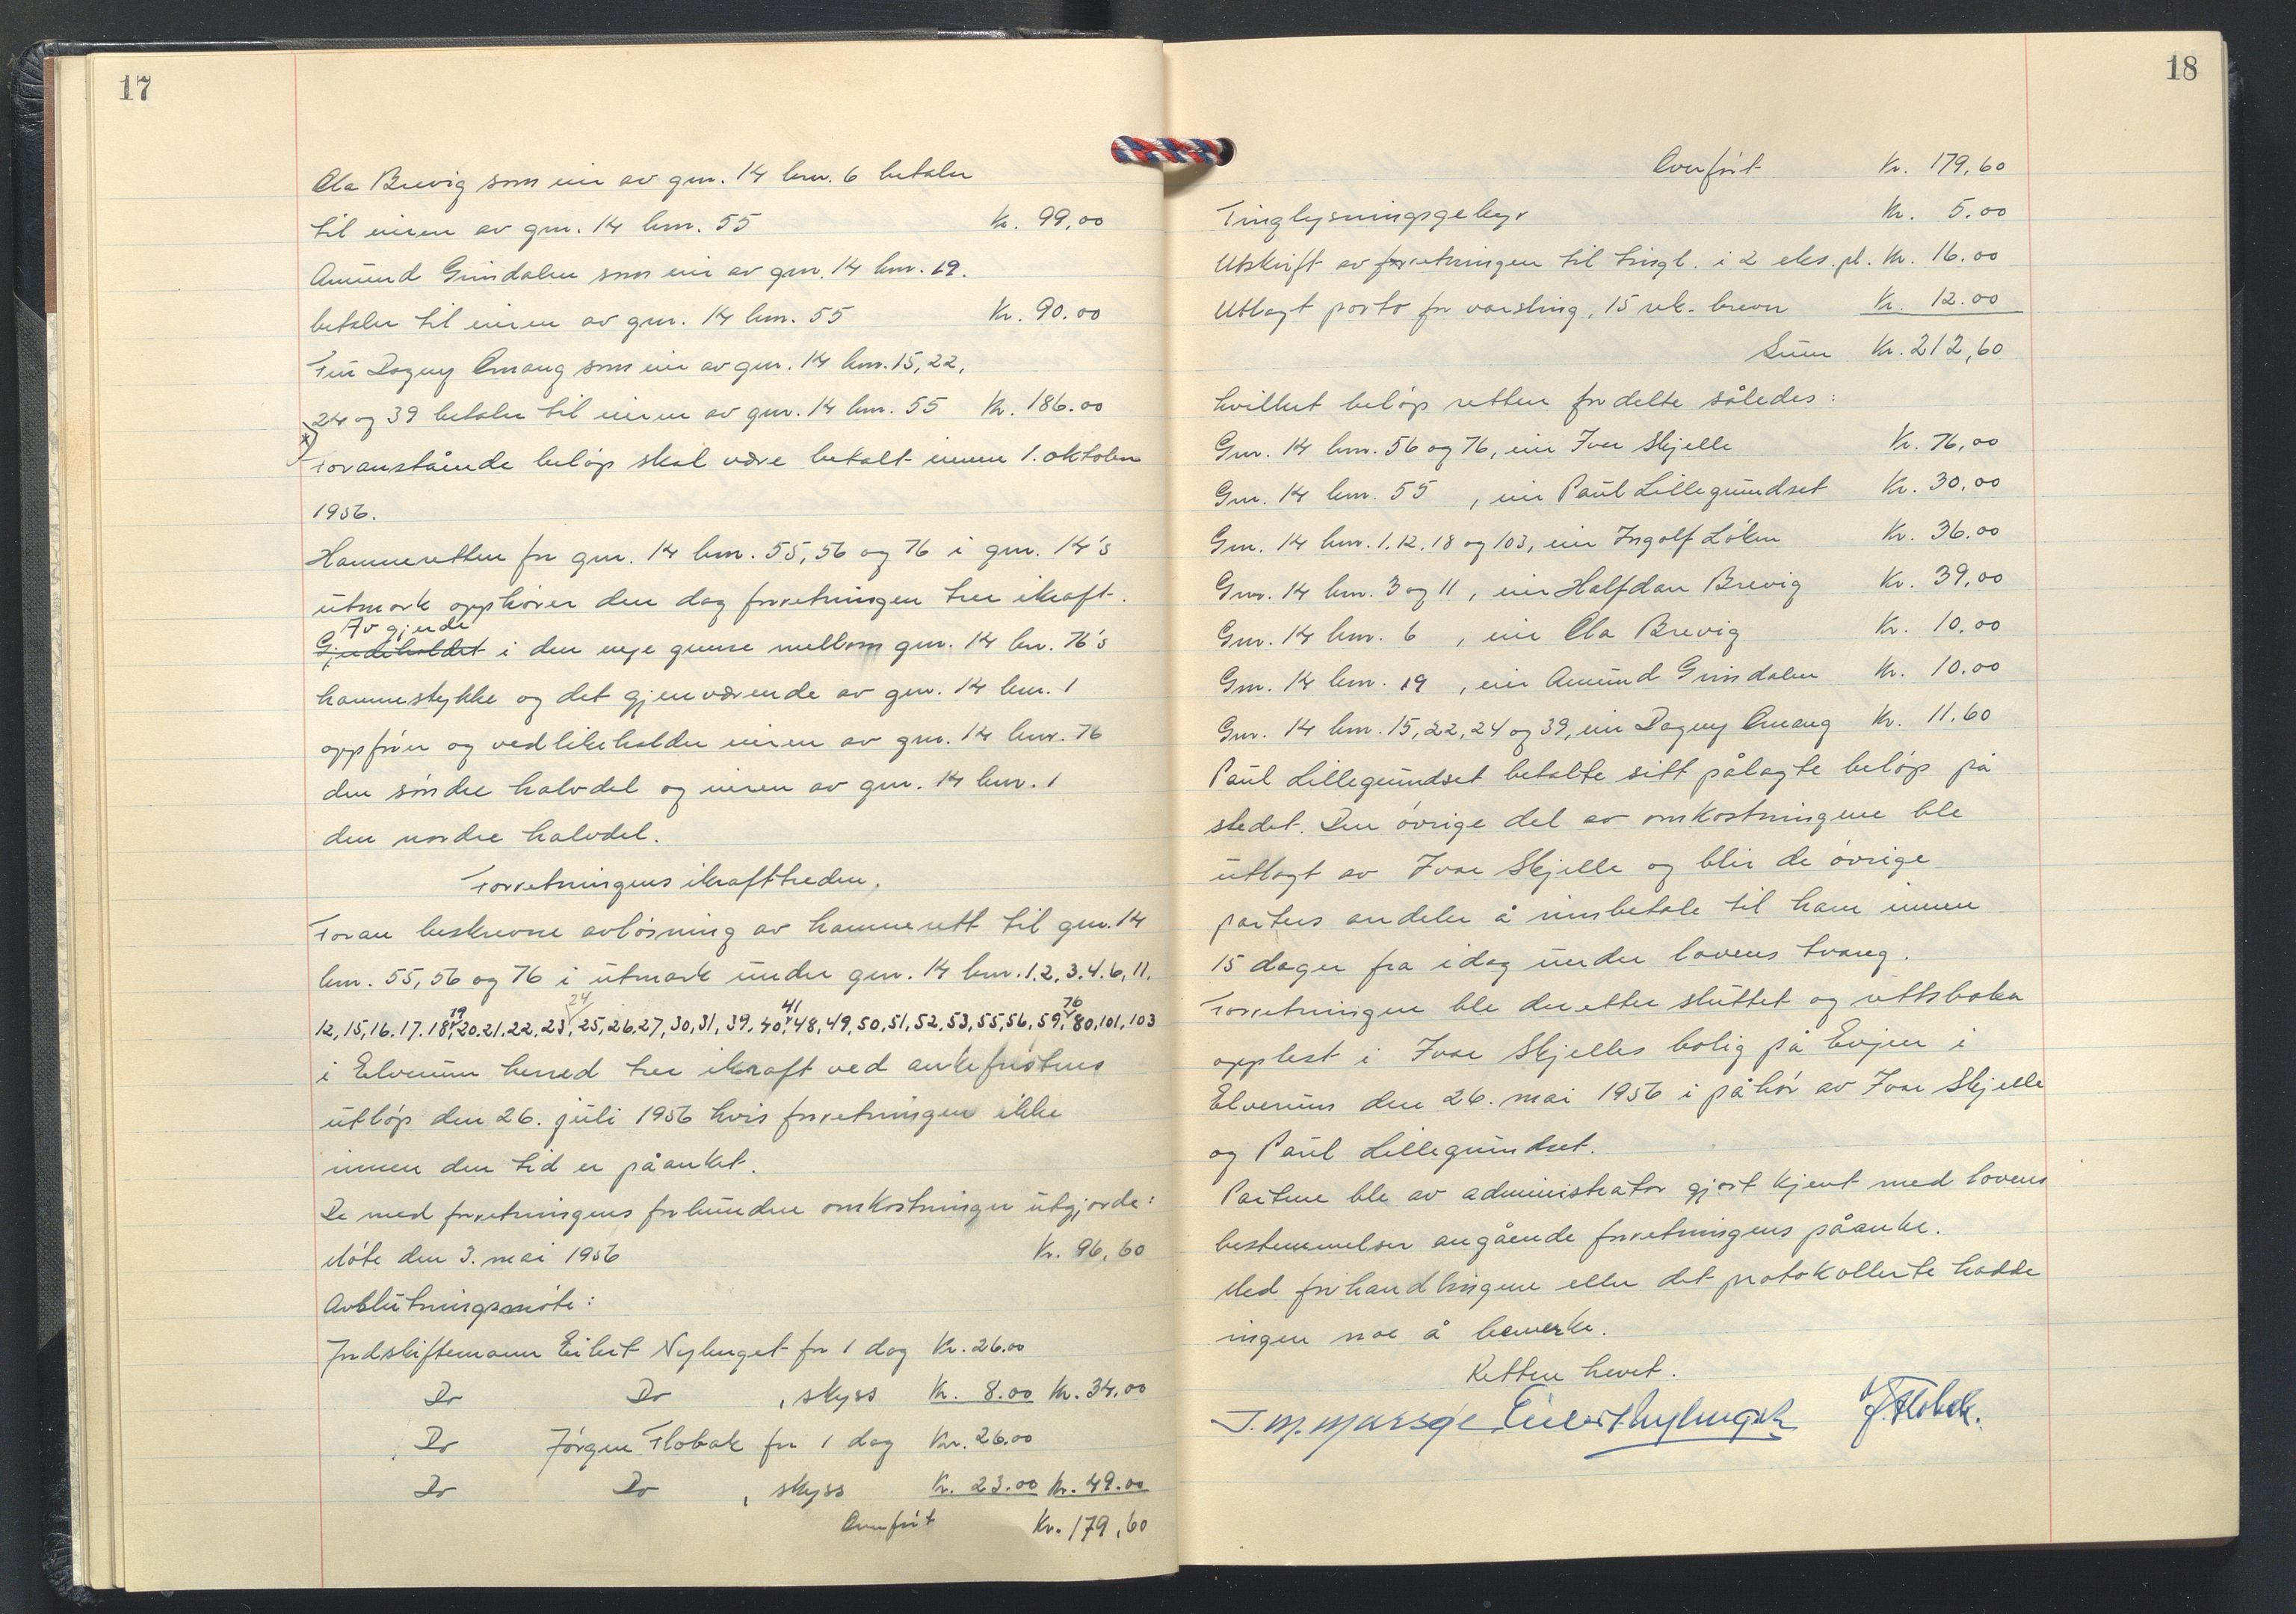 17
Ola Brevig som eier av gnr. 14 bnr. 6 betaler
til eieren av gnr. 14 bnr. 55 Kr. 99,00
Amund Grindalen som eier av gnr. 14 bnr. 19.
betaler til eieren av gnr. 14 bnr. 55 Kr. 90.00
Fru Dagny Omang som eier av gnr. 14 bnr. 15, 22,
24 og 39 betaler til eieren av gnr. 14 bnr. 55 Kr. 186.00
Foranstående beløp skal være betalt innen 1. oktober
1956.
Hamneretten for gnr. 14 bnr. 55, 56 og 76 i gnr. 14's
utmark opphører den dag forretningen trer ikraft.
Av gjerde
Gjerdeholdet i den nye grense mellom gnr. 14 bnr. 76's
hamnestykke og det gjenværende av gnr. 14 bnr. 1
oppfører og vedlikeholder eieren av gnr. 14 bnr. 76
den søndre halvdel og eieren av gnr. 14 bnr. 1
den nordre halvdel.
Forretningens ikrafttreden.
Foran beskrevne avløsning av hamnerett til gnr. 14
bnr. 55, 56 og 76 i utmark under gnr. 14 bnr. 1. 2, 3. 4. 6, 11.
19 24 41 76
12, 15, 16. 17. 18, 20. 21. 22, 23, 25, 26. 27, 30, 31, 39, 40, 48, 49, 50, 51, 52, 53, 55, 56, 59, 80, 101, 103
i Elverum herred trer ikraft ved ankefristens
utløp den 26. juli 1956 hvis forretningen ikke
innen den tid er påanket.
De med forretningens forbundne omkostninger utgjorde:
Møte den 3. mai 1956 Kr. 96,60
Avslutningsmøte:
Jordskiftemann Eilert Nyhuget for 1 dag Kr. 26.00
Do Do , skyss Kr. 8.00 Kr. 34,00
Do Jörgen Flobak for 1 dag Kr. 26.00
Do Do , skyss Kr. 23.00 Kr. 49.00
Overført Kr. 179,60
18
Overført Kr. 179,60
Tinglysningsgebyr Kr. 5.00
Utskrift av forretningen til tingl. i 2 eks.pl. Kr. 16.00
Utlagt porto for varsling, 15 rek. brever Kr. 12.00
Sum Kr. 212,60
hvilket beløp retten fordelte således:
Gnr. 14 bnr. 56 og 76, eier Ivar Skjelle Kr. 76,00
Gnr. 14 bnr. 55 , eier Paul Lillegrundset Kr. 30,00
Gnr. 14 bnr. 1. 12. 18 og 103, eier Ingolf Löken Kr. 36.00
Gnr. 14 bnr. 3 og 11, eier Halfdan Brevig Kr. 39,00
Gnr. 14 bnr. 6 , eier Ola Brevig Kr. 10.00
Gnr. 14 bnr. 19 , eier Amund Grindalen Kr. 10.00
Gnr. 14 bnr. 15, 22, 24 og 39, eier Dagny Omang Kr. 11.60
Paul Lillegrundset betalte sitt pålagte beløp på
stedet. Den øvrige del av omkostningene ble
utlagt av Ivar Skjelle og blir de øvrige
parters andeler å innbetale til ham innen
15 dager fra idag under lovens tvang.
Forretningen ble deretter sluttet og rettsboka
opplest i Ivar Skjelles bolig på Evjen i
Elverum den 26. mai 1956 i påhør av Ivar Skjelle
og Paul Lillegrundset.
Partene ble av administrator gjort kjent med lovens
bestemmelser angående forretningens påanke.
Med forhandlingene eller det protokollerte hadde
ingen noe å bemerke.
Retten hevet.
J. M. Eilert Nyhuget J. Flobak.